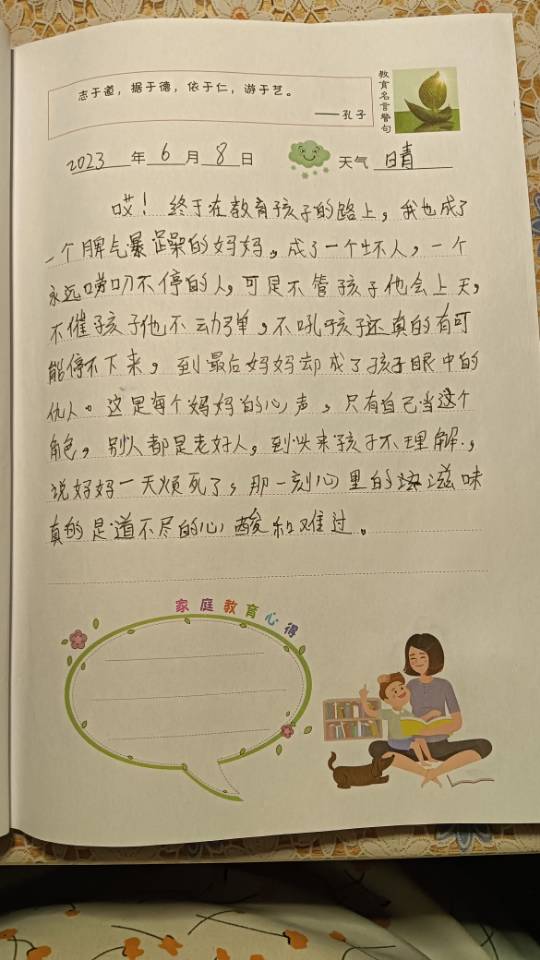 志于道，据于德，依于仁，游于艺。
——孔子
教育名言警句
2023年6月8日 天气 晴
哎！终于在教育孩子的路上，我也成了
一个脾气暴躁的妈妈。成了一个坏人，一个
永远唠叨不停的人，可是不管孩子他会上天，
不催孩子他不动弹，不吼孩子还真的有可
能停不下来，到最后妈妈却成了孩子眼中的
仇人。这是每个妈妈的心声，只有自己当这个
角色，别人都是老好人，到头来孩子不理解，
说妈妈一天烦死了，那一刻心里的滋味
真的是道不尽的心酸和难过。
家庭教育心得